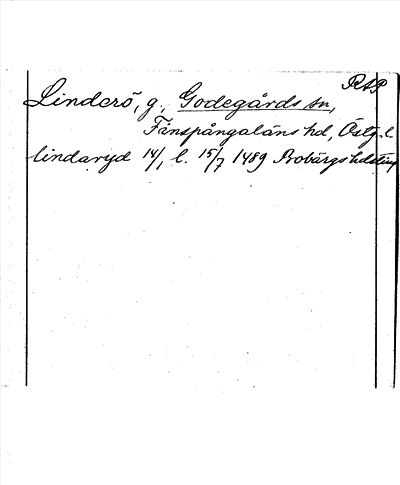 RAP
Linderö, g., Godegårds sn,
Finspångaläns hd, Östg. l.
lindaryd 14/1, l. 15/7 1489 Bobärgs hdsting